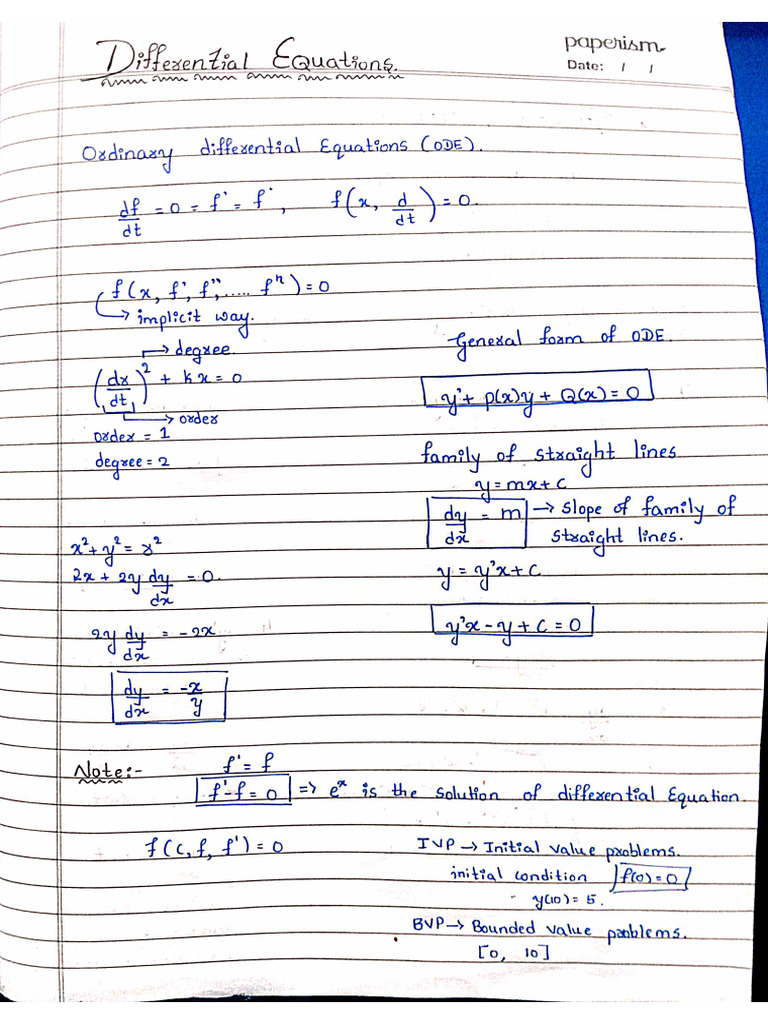 Differential Equations.
paperism
Date: / /
Ordinary differential Equations (ODE).
df/dt = 0 = f' = f˙, f(x, d/dt) = 0.
f(x, f', f'', ..... fⁿ) = 0
→ implicit way.
→ degree.
(dx/dt)² + kx = 0
→ order
order = 1
degree = 2
General form of ODE.
y' + p(x)y + Q(x) = 0
family of straight lines
y = mx + c
dy/dx = m → slope of family of
straight lines.
y = y'x + c
y'x - y + c = 0
x² + y² = r²
2x + 2y dy/dx = 0.
2y dy/dx = -2x
dy/dx = -x/y
Note:-
f' = f
f' - f = 0 => eˣ is the solution of differential Equation.
f(c, f, f') = 0
IVP → Initial value problems.
initial condition f(0) = 0
y(10) = 5.
BVP → Bounded value problems.
[0, 10]